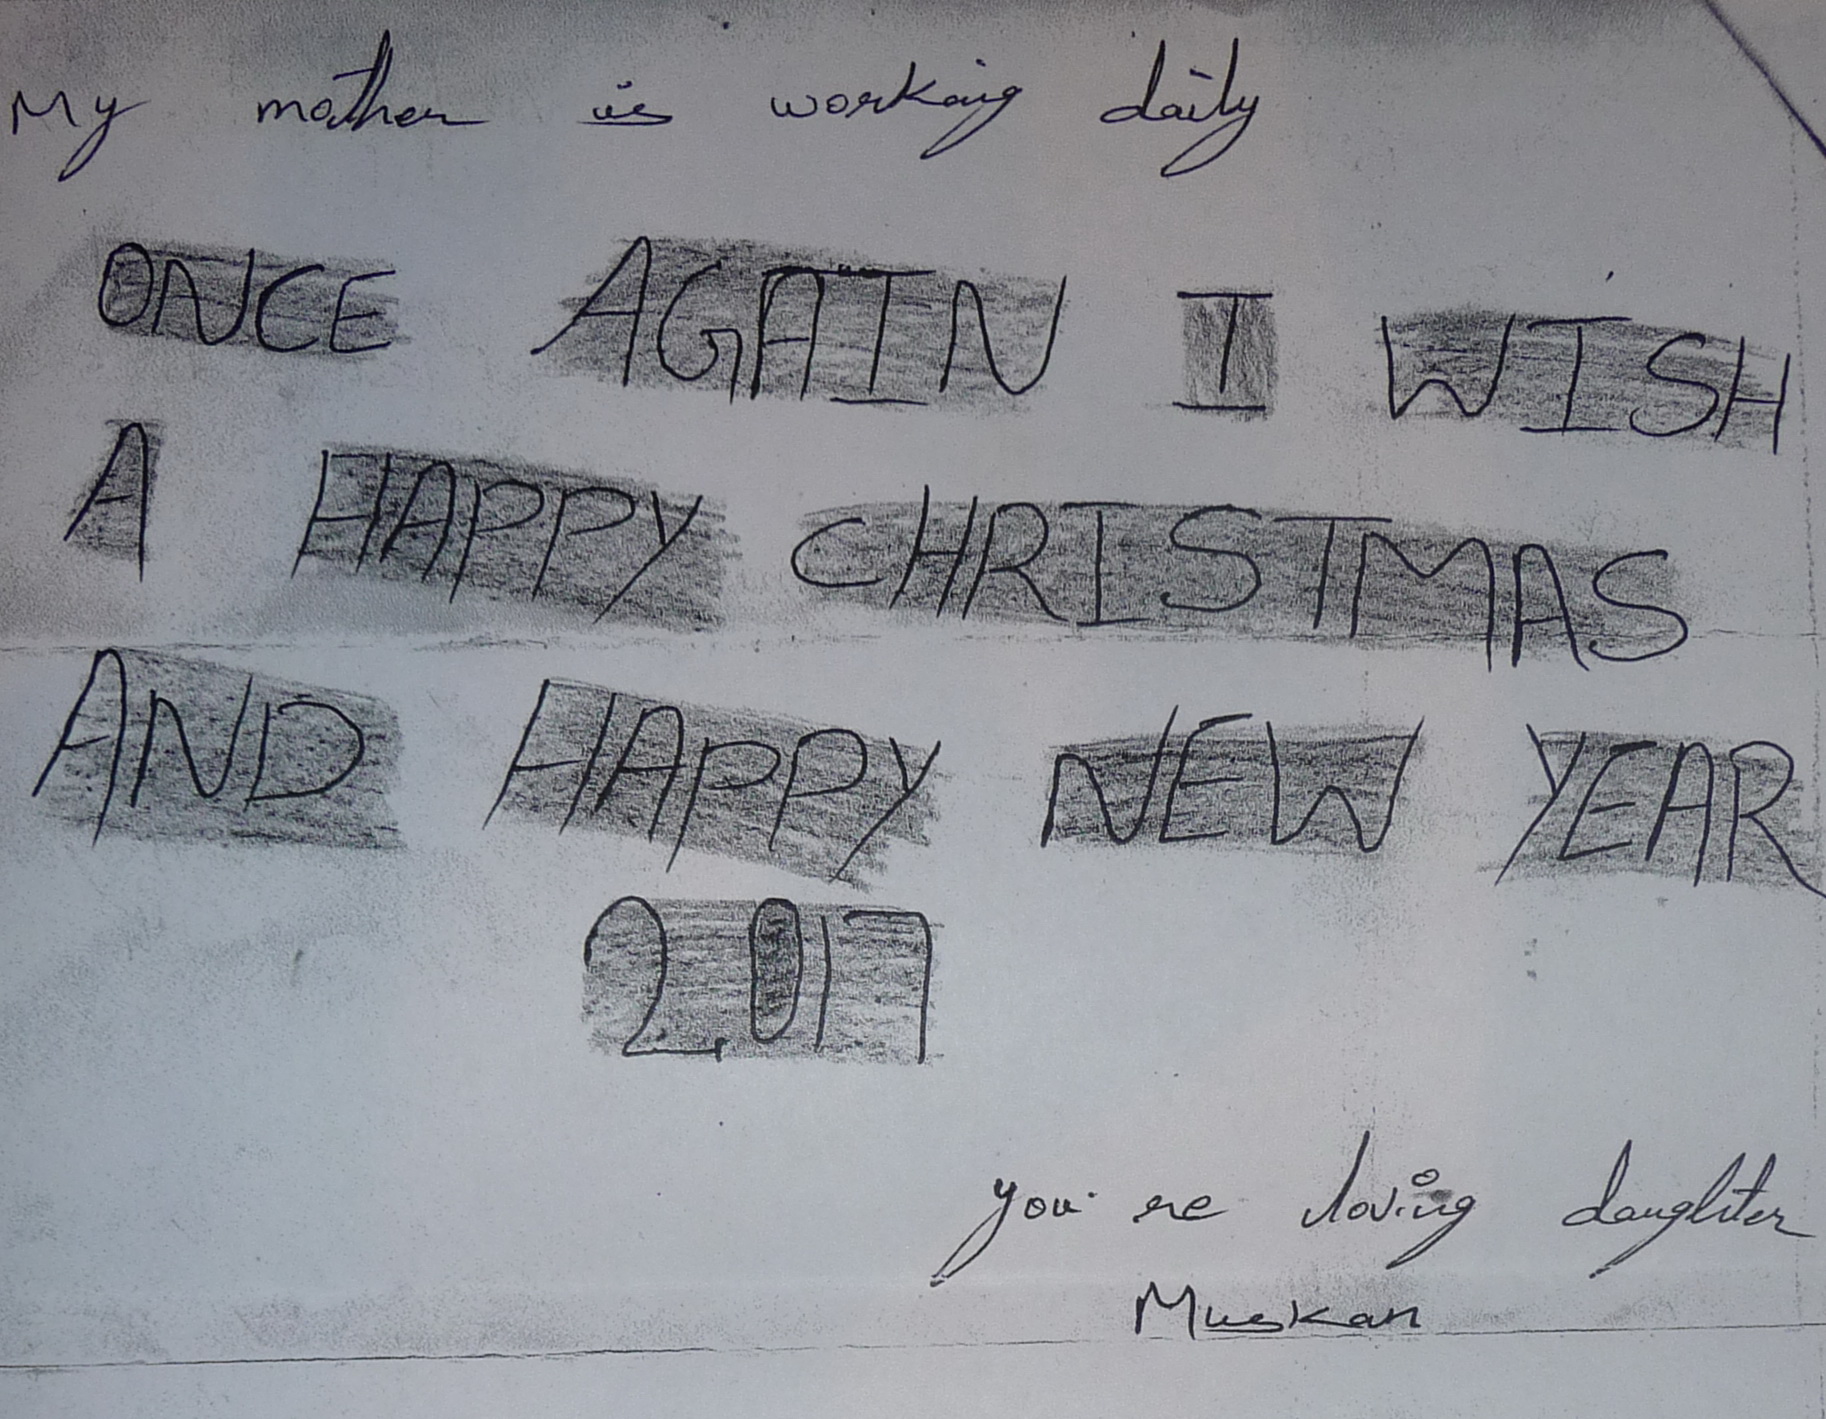 My mother is working daily
ONCE AGAIN I WISH
A HAPPY CHRISTMAS
AND HAPPY NEW YEAR
2017
you're loving daughter
Muskan